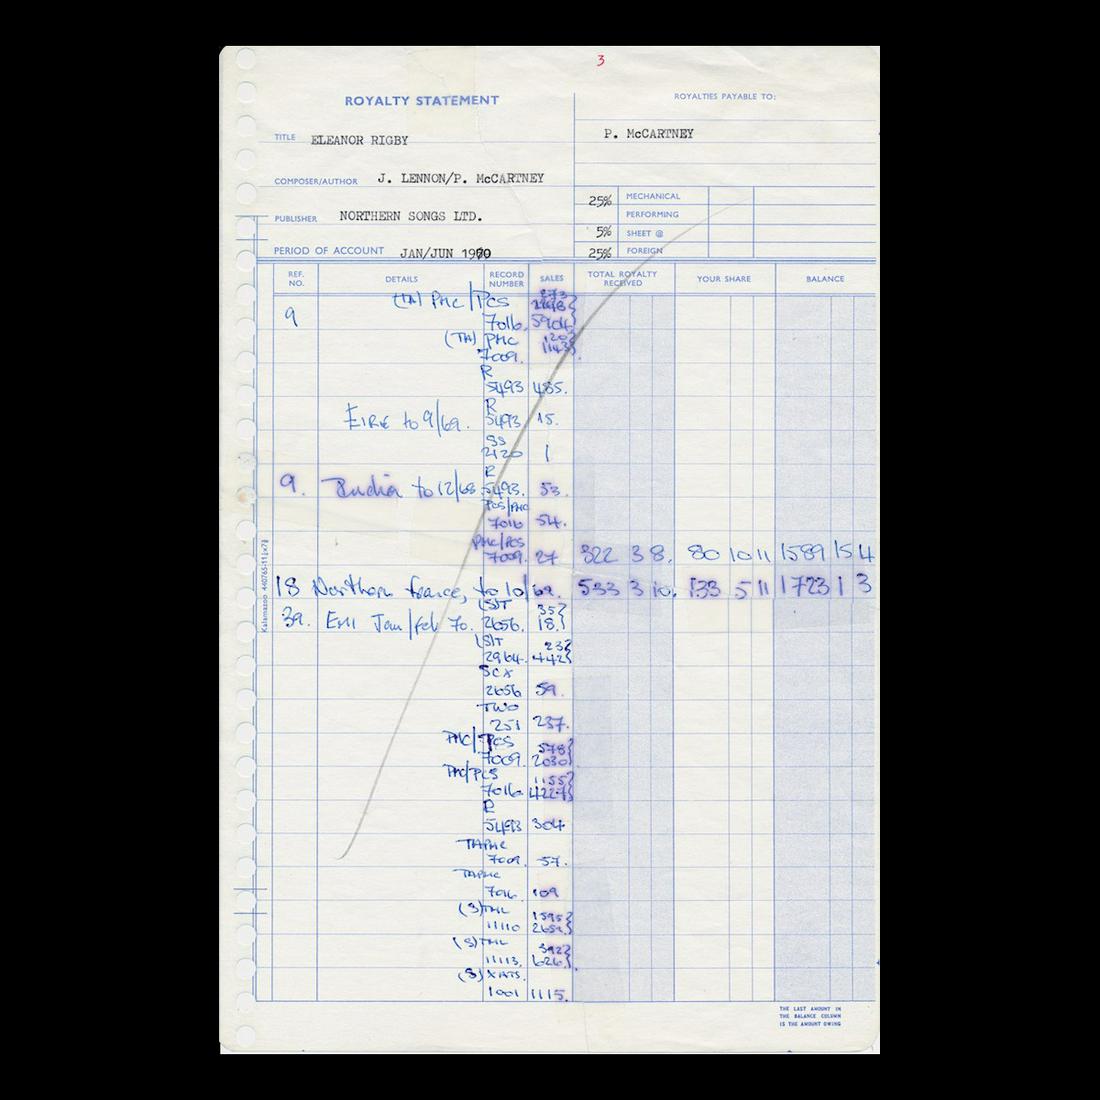 3
ROYALTY STATEMENT
ROYALTIES PAYABLE TO:
TITLE ELEANOR RIGBY
P. McCARTNEY
COMPOSER/AUTHOR J. LENNON/P. McCARTNEY
25% MECHANICAL
PERFORMING
PUBLISHER NORTHERN SONGS LTD.
5% SHEET @
PERIOD OF ACCOUNT JAN/JUN 1970
25% FOREIGN
REF. NO. DETAILS RECORD NUMBER SALES TOTAL ROYALTY RECEIVED YOUR SHARE BALANCE
(TA) PMC/PCS 273
9 7016. 5904
(TA) PMC
7009. 1143
R
5493 485.
R
EIRE to 9/69. 5493 15.
SS
2120 1
R
9. India to 12/68. 5493. 53
PCS/PMC
7016 54.
PMC/PCS
7009. 27 322 3 8. 80 10 11 1589 15 4
18 Northern France, to 10/69. 533 3 10. 133 5 11 1723 1 3
(S)T 35
39. EMI Jan/Feb 70. 2656. 18.
(S)T 23
2964. 442
SCX
2656 59.
TWO
251 237.
PMC/PCS 578
7009. 2030
PMC/PCS 1155
7016 4227
R
5493 304
TAPMC
7009. 57.
TAPMC
7016 109
(S)TML 1595
11110 2659
(S)TML 392
11113. 626.
(S)XATS.
1001 1115.
Kalamazoo 440765-11
THE LAST AMOUNT IN
THE BALANCE COLUMN
IS THE AMOUNT OWING